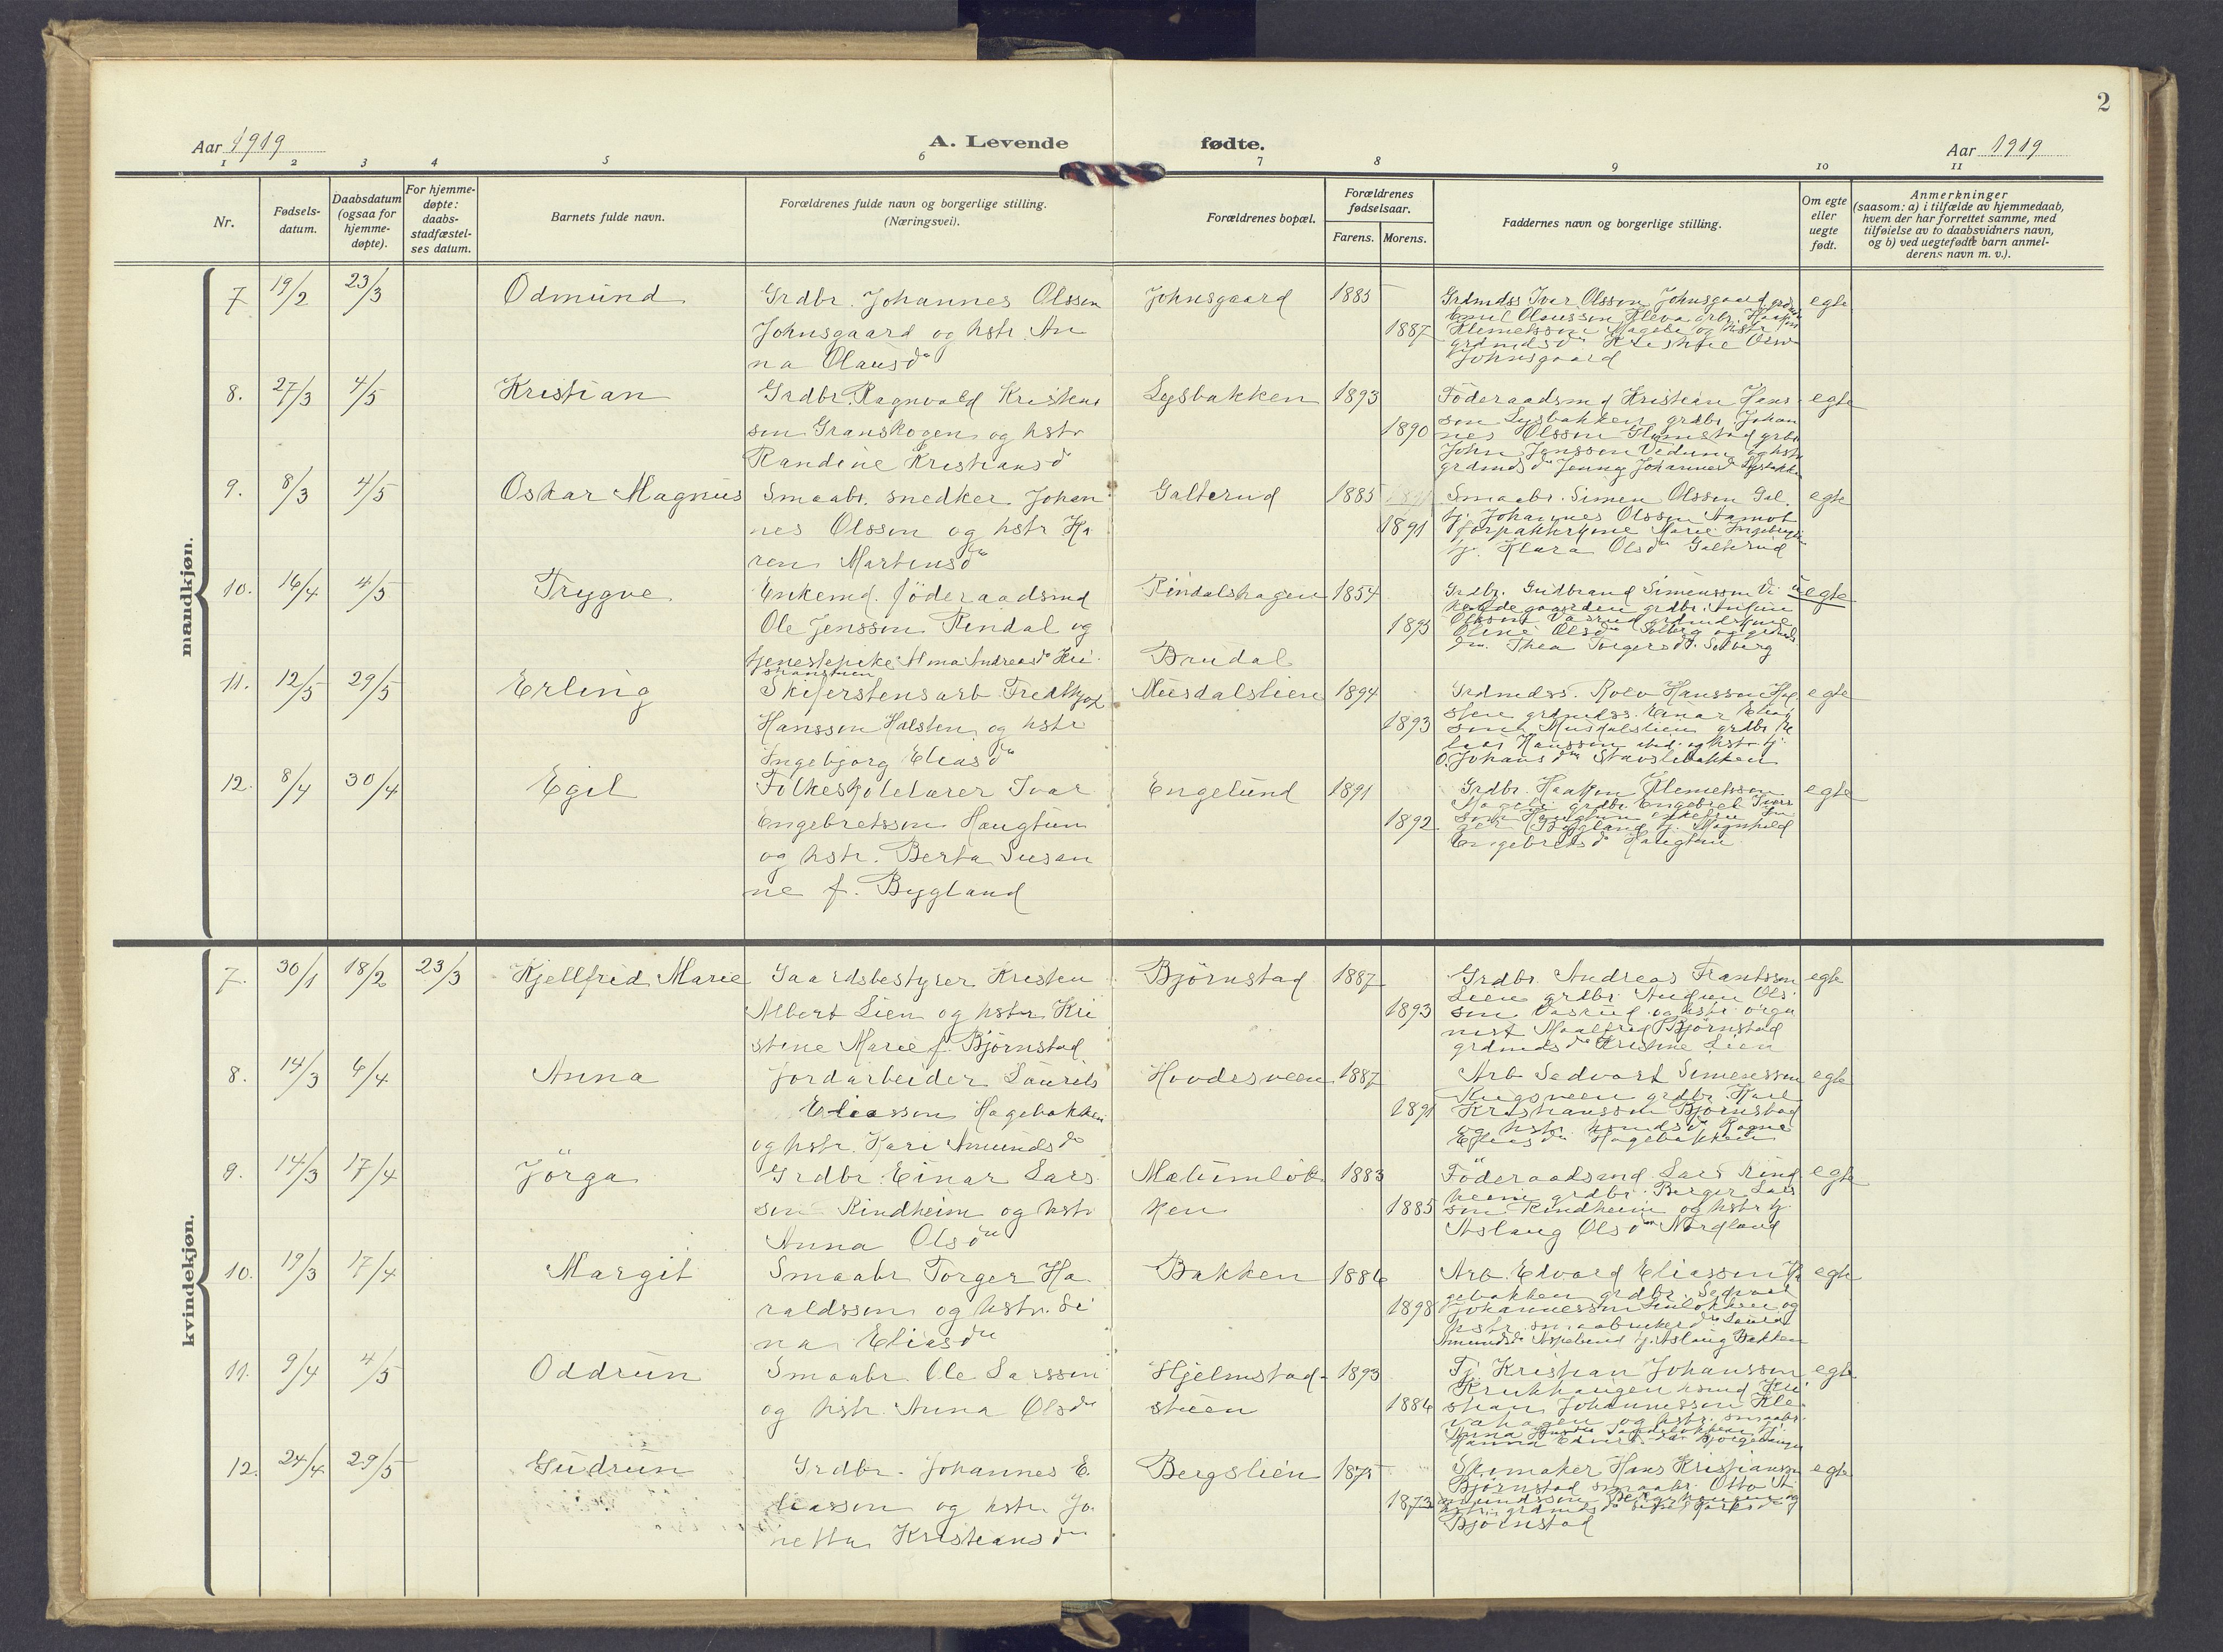 2
Aar 1919
A. Levende fødte.
Aar 1919
1 2 3 4 5 6 7 8 9 10 11
Nr.
Fødsels-
datum.
Daabsdatum
(ogsaa for
hjemme-
døpte).
For hjemme-
døpte:
daabs-
stadfæstel-
ses datum.
Barnets fulde navn.
Forældrenes fulde navn og borgerlige stilling.
(Næringsvei).
Forældrenes bopæl.
Forældrenes
fødselsaar.
Farens. Morens.
Faddernes navn og borgerlige stilling.
Om egte
eller
uegte
født.
Anmerkninger
(saasom: a) i tilfælde av hjemmedaab,
hvem der har forrettet samme, med
tilføielse av to daabsvidners navn,
og b) ved uegtefødte barn anmel-
derens navn m. v.).
mandkjøn.
7 19/2 23/3 Odmund
Grdbr. Johannes Olssen
Johnsgaard og hstr. An
na Olausdr
Johnsgaard 1885
1887
Grdmdss Ivar Olsson Johnsgaard
Emil Olausson Kleva grbr. Haakon
Klemetsson Mageli og hstr
Johnsgaard
egte
8. 27/3 4/5 Kristian
Grdbr. Ragnvald Kristian
sen Granskogen og hstr
Randine Kristiansd
Lysbakken 1893
1890
Föderaadsmd Kristian Hans
son Lysbakken grdbr. Johan
nes Olsson Glømstad grbr
John Jonsson Vedum og hstr
grdmdsdr Jenny Johannesd Lysbakken
egte
9. 8/3 4/5 Oskar Magnus
Smaabr. snedker Johan
nes Olsson og hstr Ka
ren Martinsdr
Galterud 1885
1891
Smaabr. Simen Olsson Gal.
tj. Johannes Olsson Aamot
forpakterkone Marie
tj. Klara Olsdr Galterud
egte
10. 16/4 4/5 Trygve
Enkemd. föderaadsmd
Ole Jensson Rindal og
tjenestepike Alma Andreasdr Kri
stiansmoen
Rindalshagen 1854
1895
Brudal
Grdbr. Gudbrand Simensson Vi
grdbr. Anfinn
Olsson Vasrud grdmdskone
Oline Olsdr Solberg og grdmds
dr. Thea Torgersdr. Solberg
uegte
11. 12/5 29/5 Erling
Skiferstensarb. Fredthjof
Hansson Halsten og hstr
Ingebjørg Eliasdr
Musdalslien 1894
1893
Grdmdss. Rolv Hansson Hal
sten grdmdss. Einar Elias
son Musdalslien grdbr.
Hansson og hstr tj.
O. Johansdr Stavslibakken
egte
12. 8/4 30/4 Egil
Folkeskolelærer Ivar
Engebretsson Haugtun
og hstr. Berta Susan
ne f. Bygland
Engelund 1891
1892
Grdbr. Haakon Klemetsson
Mageli grdbr. Engebret Ivers
son Haugtun
Bygland tj. Magnhild
Engebretsdr Haugtun
egte
kvindekjøn.
7. 30/1 18/2 23/3 Kjellfrid Marie
Gaardsbestyrer Kristen
Albert Lien og hstr. Kri
stine Marie f. Björnstad
Björnstad 1887
1893
Grdbr. Andreas Frantsson
Lien grdbr. Anfinn Ols
son Vasrud og hstr orga
nist Maalfrid Björnstad
grdmdsdr Kristine Lien
egte
8. 14/3 6/4 Anna
Jordarbeider Laurits
Eliasson Hagebakken
og hstr. Kari Amundsdr
Hovdesveen 1887
1891
Arb Sedvart Simensson
Kingsveen grdbr. Karl
Kristiansson Bjørnstad
og hstr. Ragna
Eliasdr Hagebakken
egte
9. 14/3 17/4 Jörga
Grdbr. Einar Lars
son Rindheim og hstr
Anna Olsdr
Mælumløk
ken
1883
1885
Föderaadsmd Lars Rind
heim grdbr. Berger Lars
son Rindheim og hstr tj.
Aslaug Olsdr Nordland
egte
10. 19/3 17/4 Margit
Smaabr Torger Ha
raldsson og hstr. Si
na Eliasdr
Bakken 1886
1898
Arb. Edvard Eliasson Ha
gebakken grdbr. Sedvart
Johannesson Linløkken og
hstr. smaabrukerdr Laura
Amundsdr Aspelund tj. Aslaug Bakken
egte
11. 9/4 4/5 Oddrun
Smaabr. Ole Larsson
og hstr. Anna Olsdr
Hjelmstad-
stuen
1893
1886
Tj. Kristian Johansson
Krukhaugen hsmd Kri
stian Johannesson Kle
vahagen og hstr. smaabr.
Anna
Hanna
egte
12. 24/4 29/5 Gudrun
Grdbr. Johannes E.
liasson og hstr. Jo
netta Kristiansdr
Bergslien 1875
1873
Skomaker Hans Kristiansson
Björnstad smaabr. Otto A
mundsson
Bjørnstad
egte